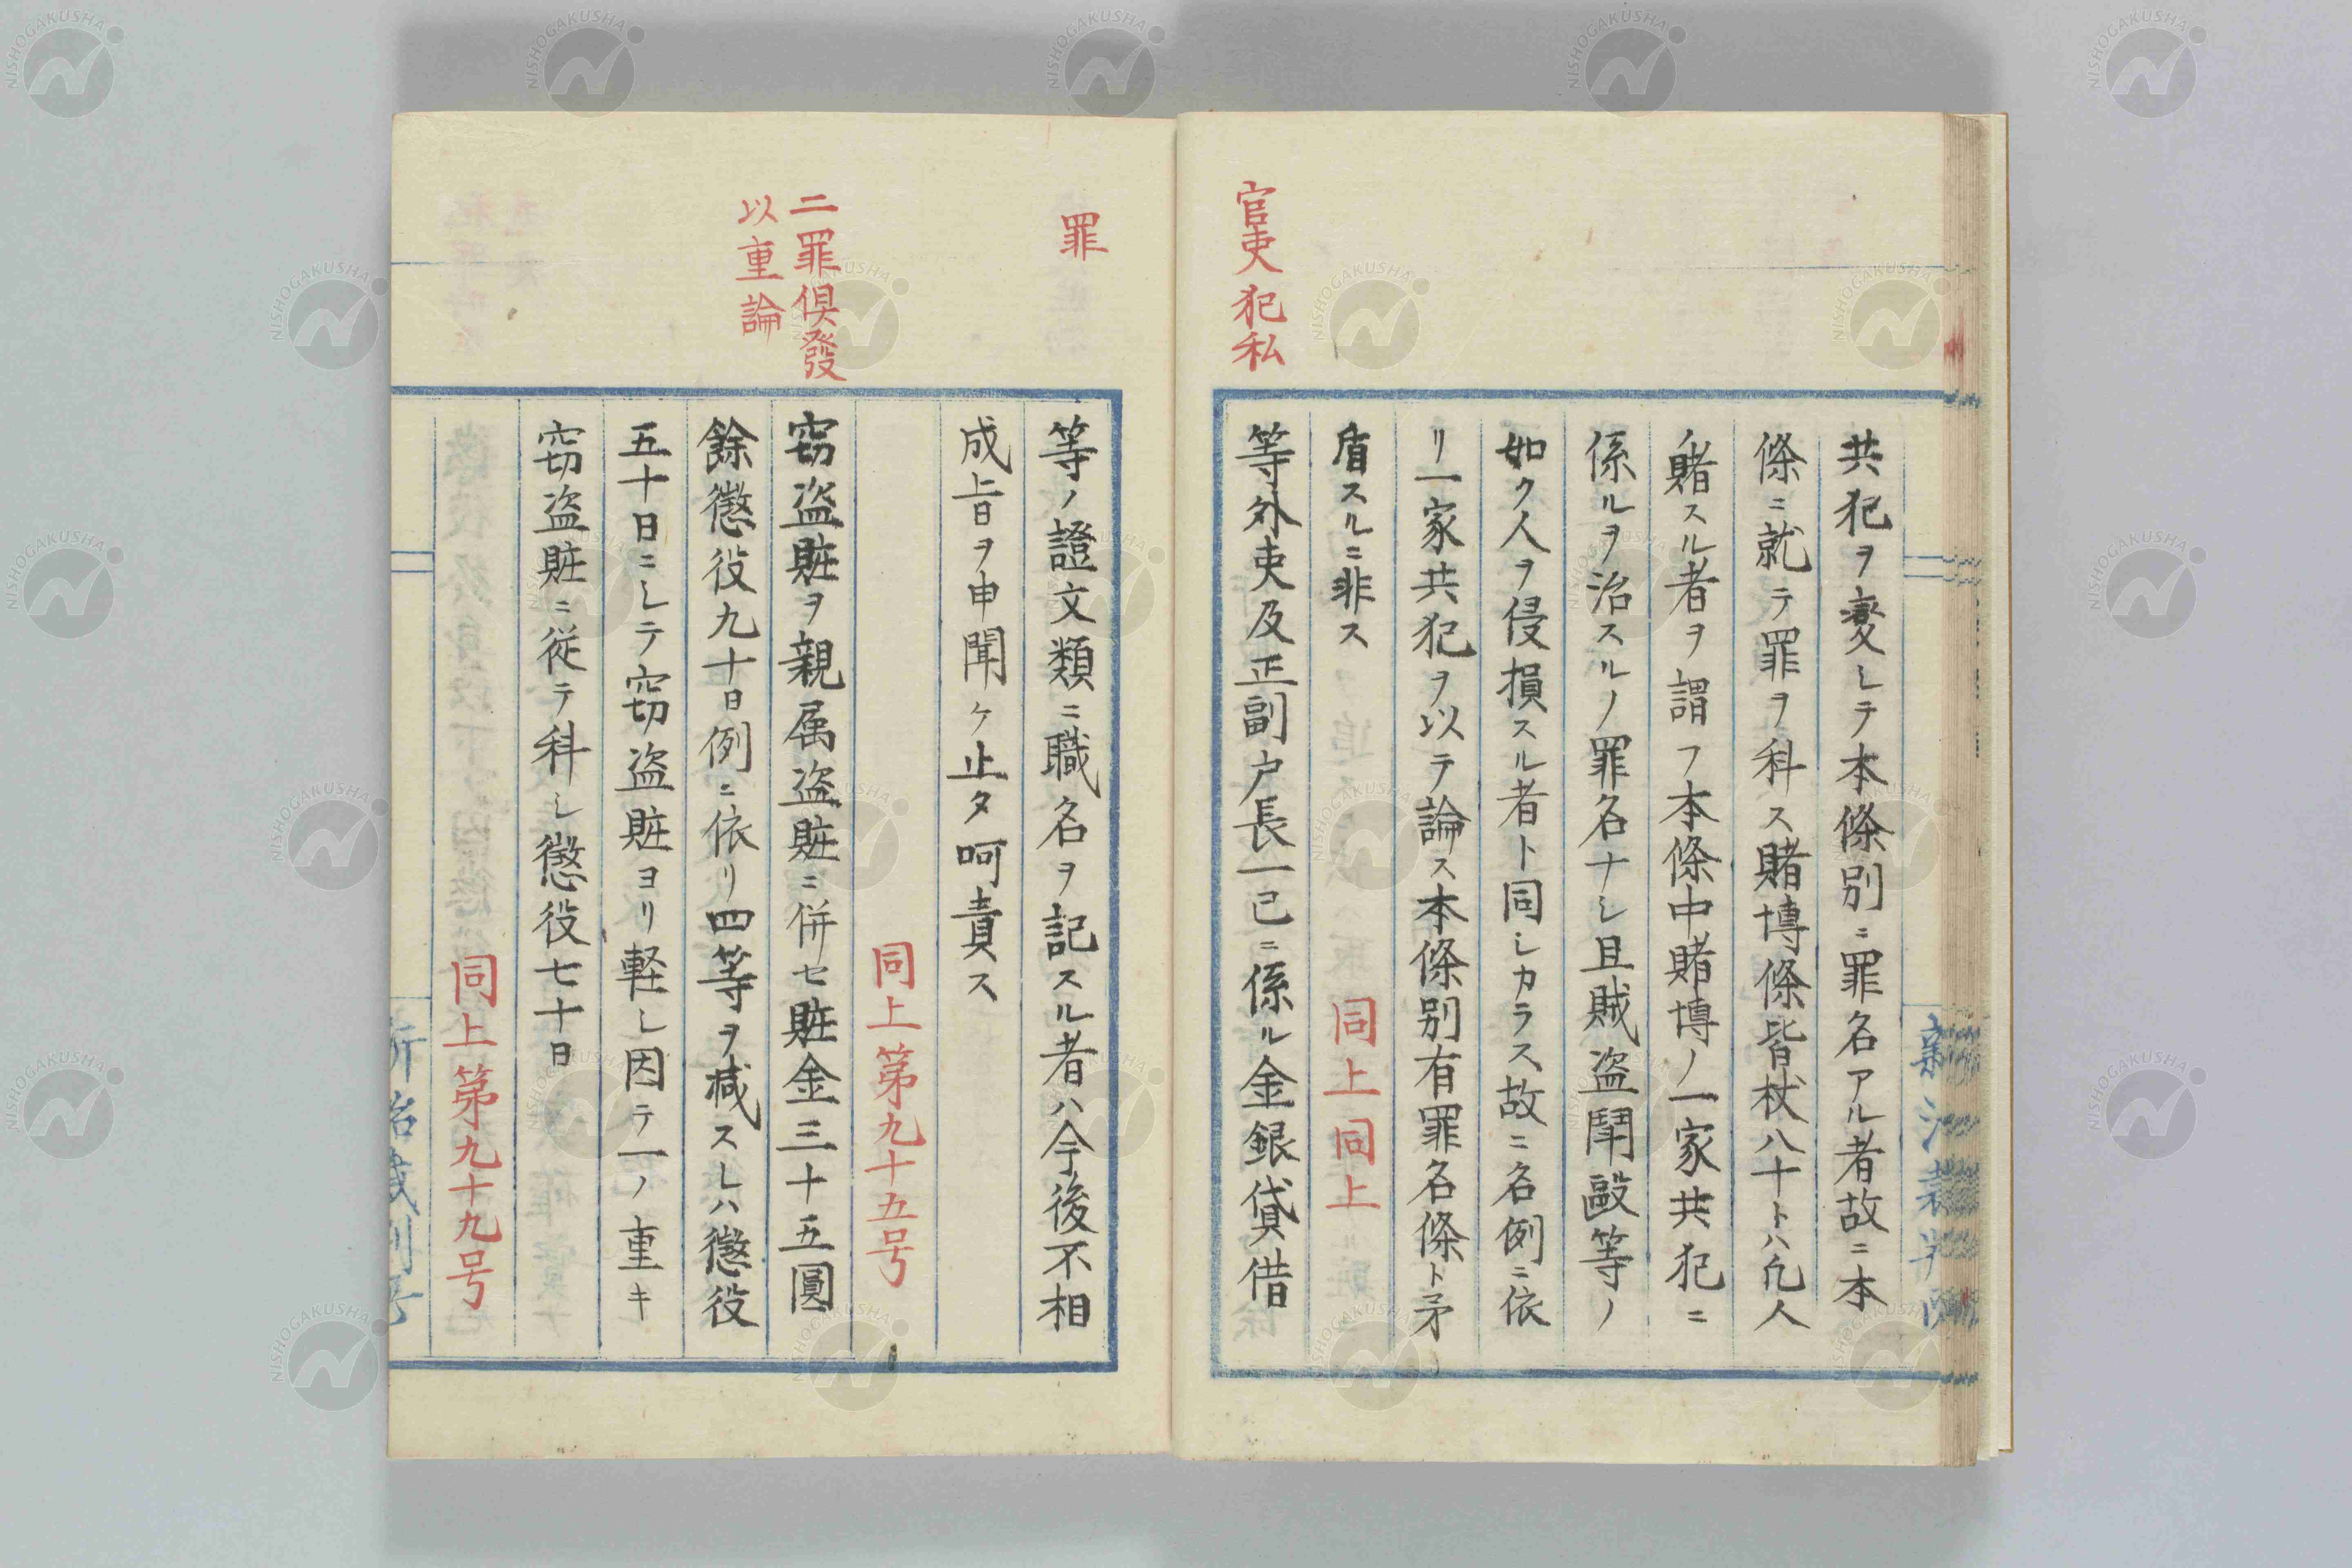 共犯ヲ変シテ本條別ニ罪名アル者故ニ本
條ニ就テ罪ヲ科ス賭博條皆杖八十トハ凢人
ノ賭スル者ヲ謂フ本條中賭博ノ一家共犯ニ
係ルヲ治スルノ罪名ナシ且賊盗鬪毆等ノ
如ク人ヲ侵損スル者ト同シカラス故ニ名例ニ依
リ一家共犯ヲ以テ論ス本條別有罪名條ト矛
盾スルニ非ス
同上同上
官吏犯私
等外吏及正副戸長一己ニ係ル金銀貸借
罪
等ノ證文類ニ職名ヲ記スル者ハ今後不相
成旨ヲ申聞ケ止タ呵責ス
同上第九十五号
二罪俱發
以重論
窃盗賍ヲ親属盗賍ニ併セ賍金三十五圓
餘懲役九十日例ニ依リ四等ヲ減スレハ懲役
五十日ニシテ窃盗賍ヨリ軽シ因テ一ノ重キ
窃盗賍ニ従テ科シ懲役七十日
同上第九十九号
NISHOGAKUSHA